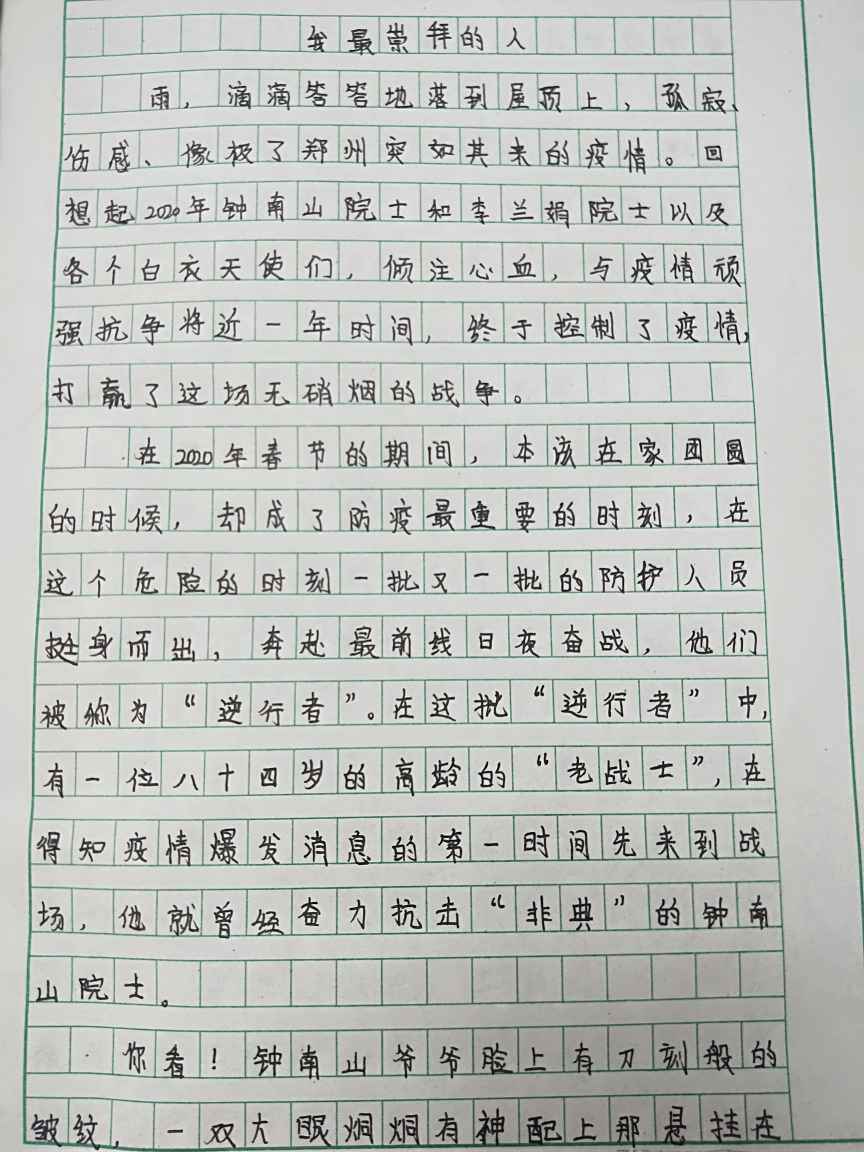 我最崇拜的人
雨，滴滴答答地落到屋顶上，孤寂、
伤感、像极了郑州突如其来的疫情。回
想起2020年钟南山院士和李兰娟院士以及
各个白衣天使们，倾注心血，与疫情顽
强抗争将近一年时间，终于控制了疫情，
打赢了这场无硝烟的战争。
在2020年春节的期间，本该在家团圆
的时候，却成了防疫最重要的时刻，在
这个危险的时刻一批又一批的防护人员
挺身而出，奔赴最前线日夜奋战，他们
被称为“逆行者”。在这批“逆行者”中，
有一位八十四岁的高龄的“老战士”，在
得知疫情爆发消息的第一时间先来到战
场，他就曾经奋力抗击“非典”的钟南
山院士。
你看！钟南山爷爷脸上有刀刻般的
皱纹，一双大眼炯炯有神配上那悬挂在